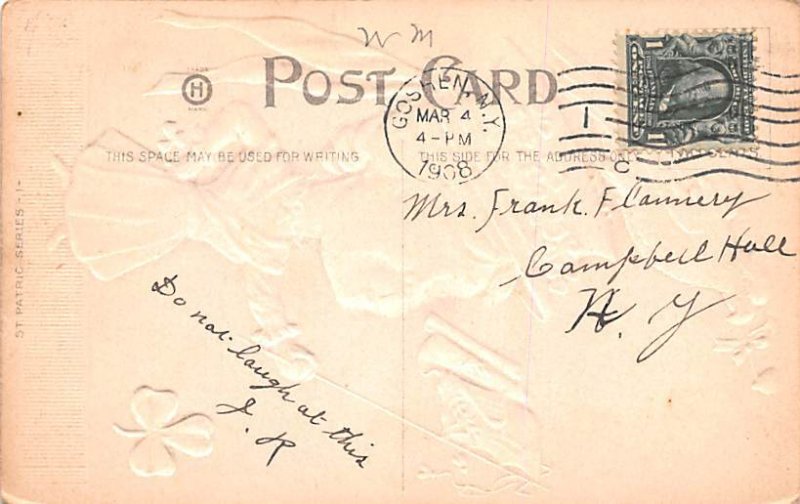 W M
POST CARD
H
GOSHEN, N.Y.
MAR 4
4-PM
1908
1
C
THIS SPACE MAY BE USED FOR WRITING
THIS SIDE FOR THE ADDRESS ONLY
ST PATRIC SERIES -1-
Mrs. Frank. Flannery
Campbell Hall
N. Y
Do not laugh at this
J. R